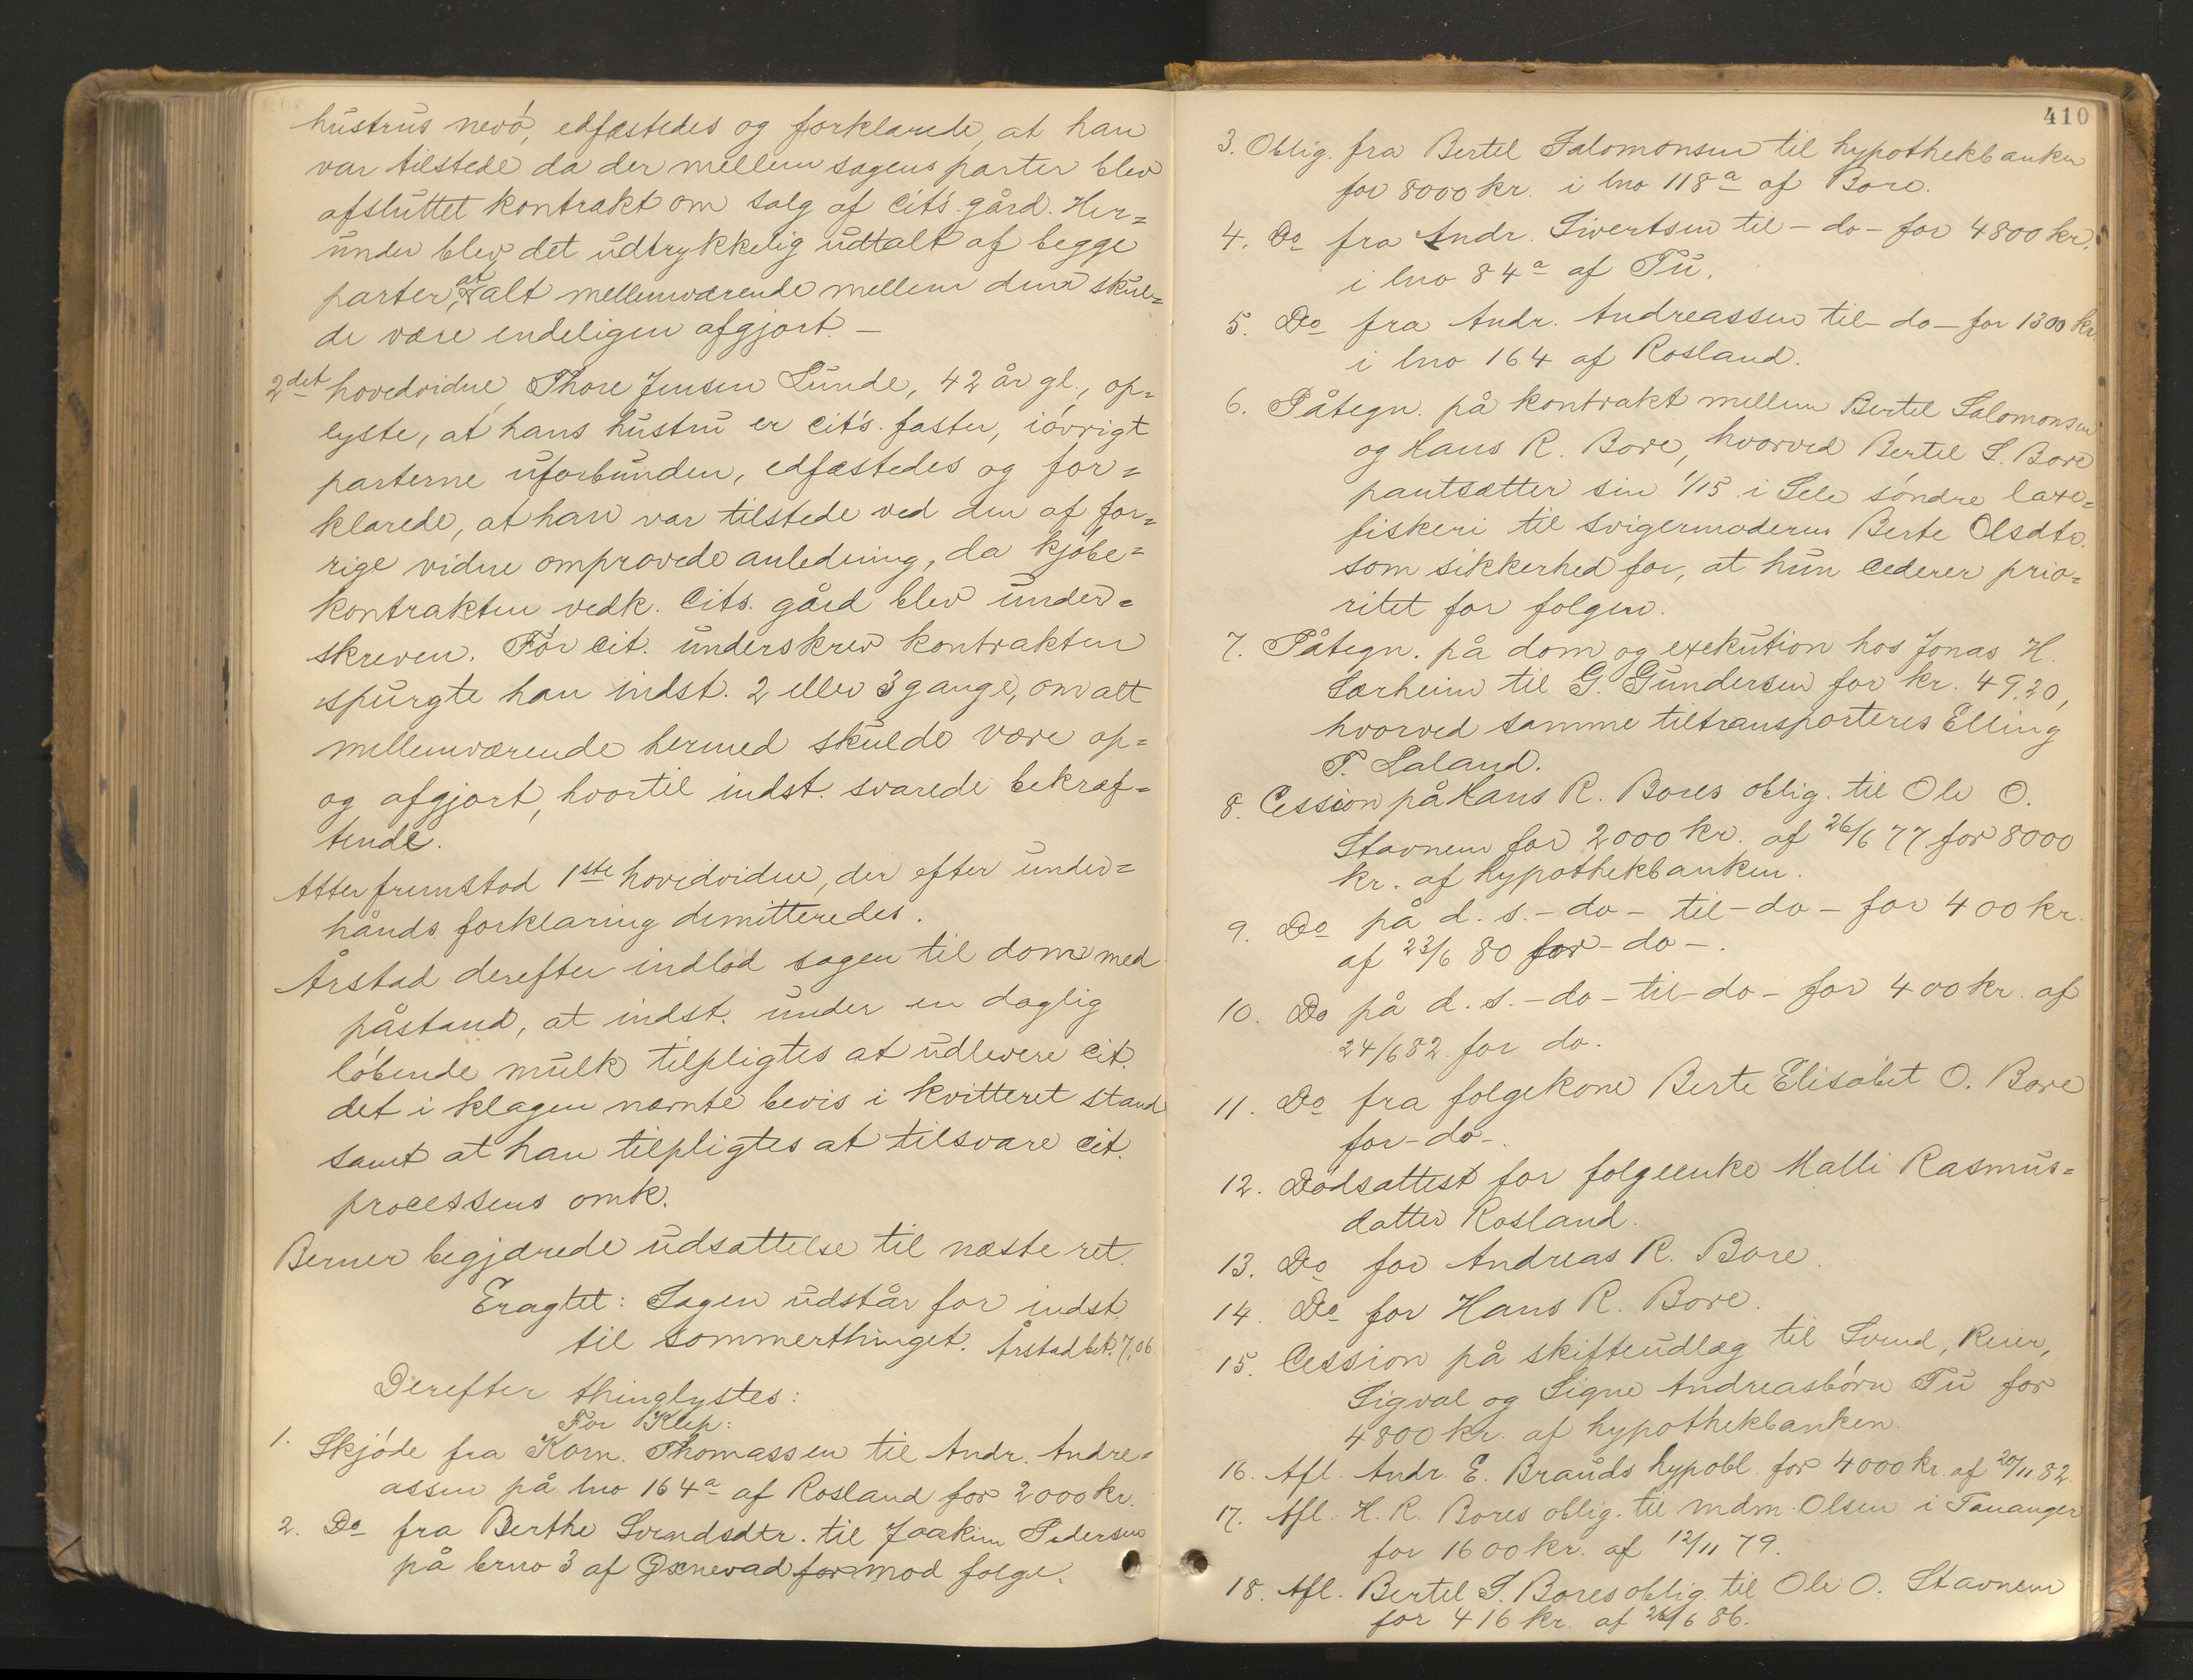 hustrus nevö, edfæstedes og forklarede, at han
var tilstede da der mellem sagens parter blev
afsluttet kontrakt om salg af cit's. gård. Her=
under blev det udtrykkelig udtalt af begge
parter, at alt mellemværende mellem dem skul=
de være endeligen afgjort. —
2det hovedvidne, Thore Jensen Lunde, 42 år gl., op=
lyste, at hans hustru er cit's. faster, iövrigt
parterne uforbunden, edfæstedes og for=
klarede, at han var tilstede ved den af for=
rige vidne omprovede anledning, da kjöbe=
kontrakten vedk. Cits. gård blev under=
skreven. För cit. underskrev kontrakten
spurgte han indst. 2 eller 3 gange, om alt
mellemværende hermed skulde være op=
og afgjort, hvortil indst. svarede bekræf=
tende.
Atter fremstod 1ste hovedvidne, der efter under=
hånds forklaring demitteredes.
Årstad derefter indlod sagen til doms med
påstand, at indst. under en daglig
löbende mulk tilpligtes at udlevere cit.
det i klagen nævnte bevis i kvitteret stand
samt at han tilpligtes at tilsvare cit.
processens omk.
Berner begjærede udsættelse til næste ret.
Eragtet: Sagen udstår for indst.
til sommerthinget. Årstad bet. 7,06
Derefter thinglystes:
For Klep:
1. Skjöde fra Korn. Thomassen til Andr. Andre=
assen på lno 164a af Rosland for 2000 kr.
2. Do fra Berthe Svendsdtr. til Joakim Pedersen
på brno 3 af Øxnevad for mod folge.
410
3. Oblig. fra Bertel Salomonsen til hypothekbanken
for 8000 kr. i lno 118a af Bore.
4. Do fra Andr. Sivertsen til - do - for 4800 kr.
i lno 84a af Tu.
5. Do fra Andr. Andreassen til - do - for 1300 kr.
i lno 164 af Rosland.
6. Påtegn. på kontrakt mellem Bertel Salomonsen
og Hans R. Bore, hvorved Bertel S. Bore
pantsætter sin 1/15 i Sele söndre laxe=
fiskeri til svigermoderen Berte Olsdtr.
som sikkerhed for, at hun cederer prio=
ritet for folgen.
7. Påtegn. på dom og exekution hos Jonas H.
Lærheim til G. Gundersen for kr. 49.20,
hvorved samme tiltransporteres Elling
T. Laland.
8. Cession på Hans R. Bores oblig. til Ole O.
Stavnem for 2000 kr. af 26/6 77 for 8000
kr. af hypothekbanken.
9. Do på d. s. - do - til - do - for 400 kr.
af 23/6 80 for - do -.
10. Do på d. s. - do - til - do - for 400 kr. af
24/6 82 for do.
11. Do fra folgekone Berte Elisabet O. Bore
for - do -.
12. Dödsattest for folgeenke Malli Rasmus=
datter Rosland.
13. Do for Andreas R. Bore.
14. Do for Hans R. Bore.
15. Cession på skifteudlæg til Svend, Reier,
Sigval og Signe Andreasbörn Tu for
4800 kr. af hypothekbanken.
16. Afl. Andr. E. Brauds hypobl. for 4000 kr. af 20/11 82.
17. Afl. H. R. Bores oblig. til mdm. Olsen i Tananger
for 1600 kr. af 12/11 79.
18. Afl. Bertel S. Bores oblig. til Ole O. Stavnem
for 416 kr. af 26/6 86.